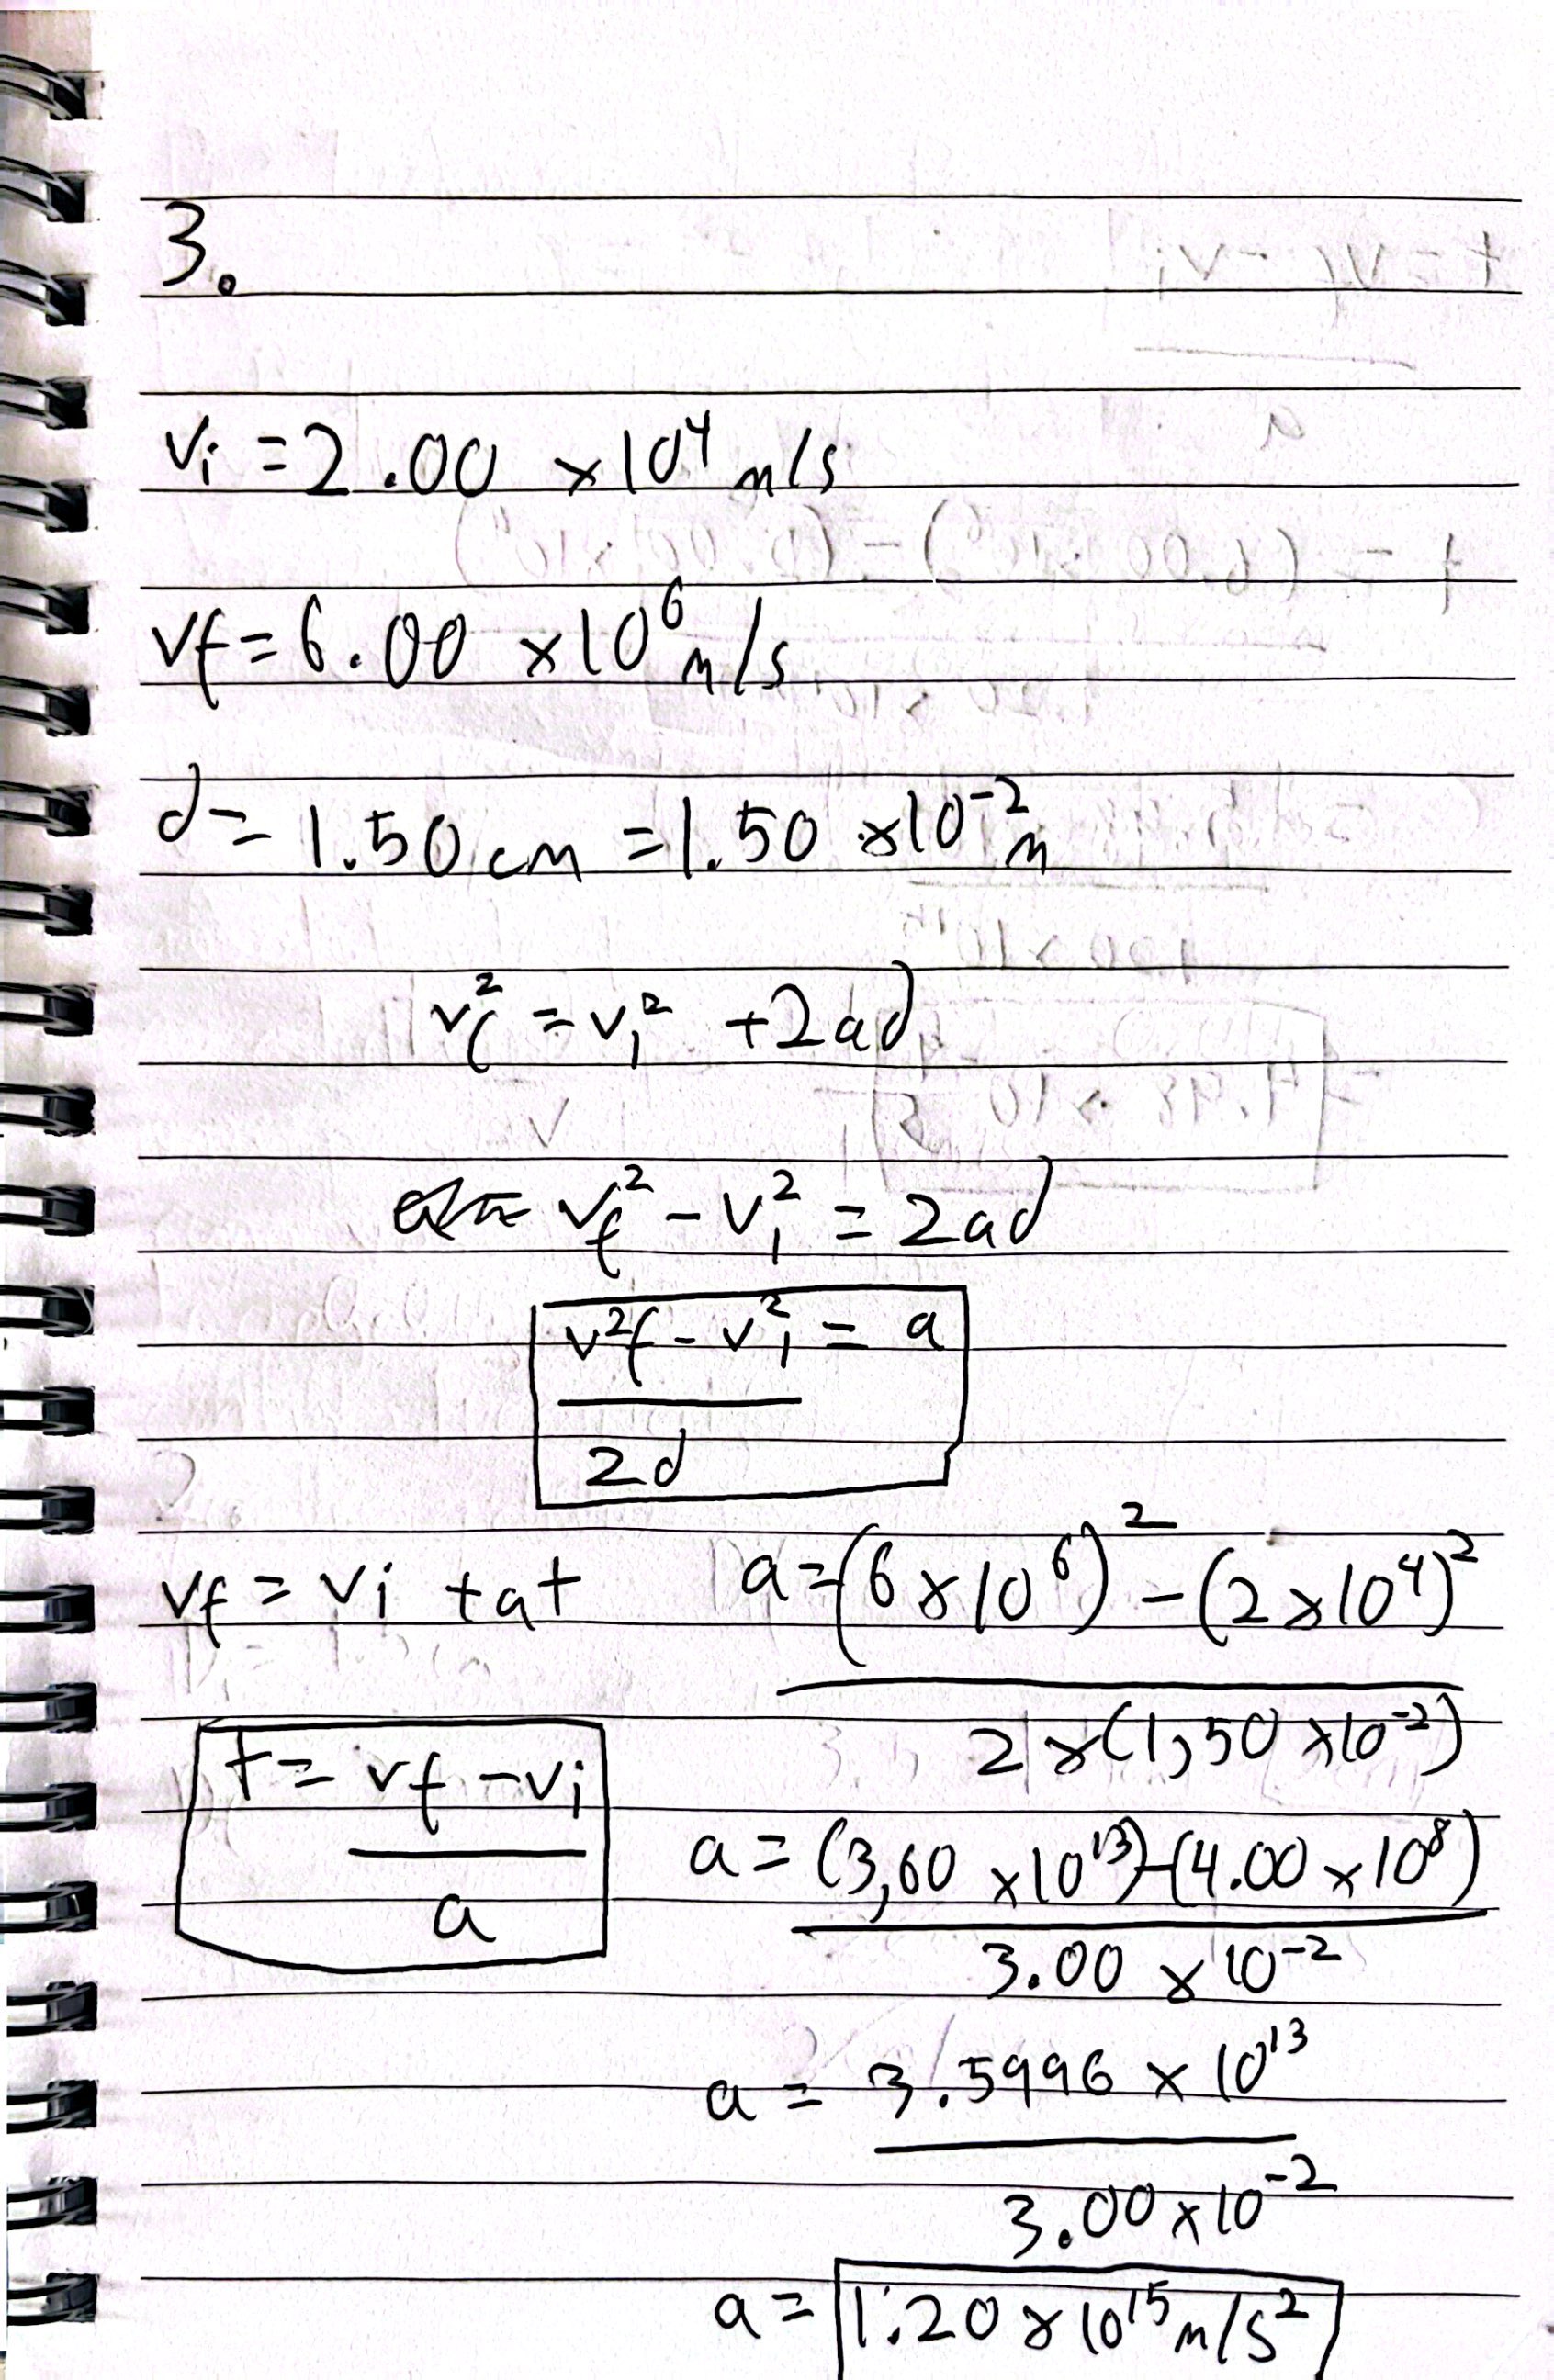 3.
vi = 2.00 ×10⁴ m/s
vf = 6.00 ×10⁶ m/s
d = 1.50 cm = 1.50 ×10⁻² m
vf² = vi² + 2ad
vf² - vi² = 2ad
v²f - vi² = a
2d
vf = vi + at
a = (6 × 10⁶)² - (2 × 10⁴)²
2 × (1,50 ×10⁻²)
t = vf - vi
a
a = (3,60 ×10¹³) - (4.00 × 10⁸)
3.00 × 10⁻²
a = 3.5996 × 10¹³
3.00 × 10⁻²
a = 1.20 × 10¹⁵ m/s²